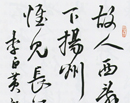 故人西辞
下揚州
惟見長江
李白黄